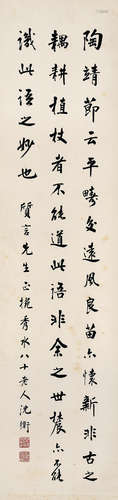 陶靖節云平疇交遠風良苗亦懷新非古之
耦耕植杖者不能道此語非余之世農亦不能
識此語之妙也
質言先生正梡秀水八十老人沈衛